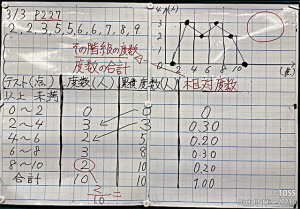 3/3 P227
2, 2, 3, 5, 5, 6, 6, 7, 8, 9
その階級の度数
度数の合計
4 (人)
3
2
1
0 2 4 6 8 10 (点)
テスト(点) 度数(人) 累積度数(人) 相対度数
以上 未満
0～2 0 0 0
2～4 3 3 0.30
4～6 2 5 0.20
6～8 3 8 0.30
8～10 2 10 0.20
合計 10 10 1.00
2/10 =
TOSS